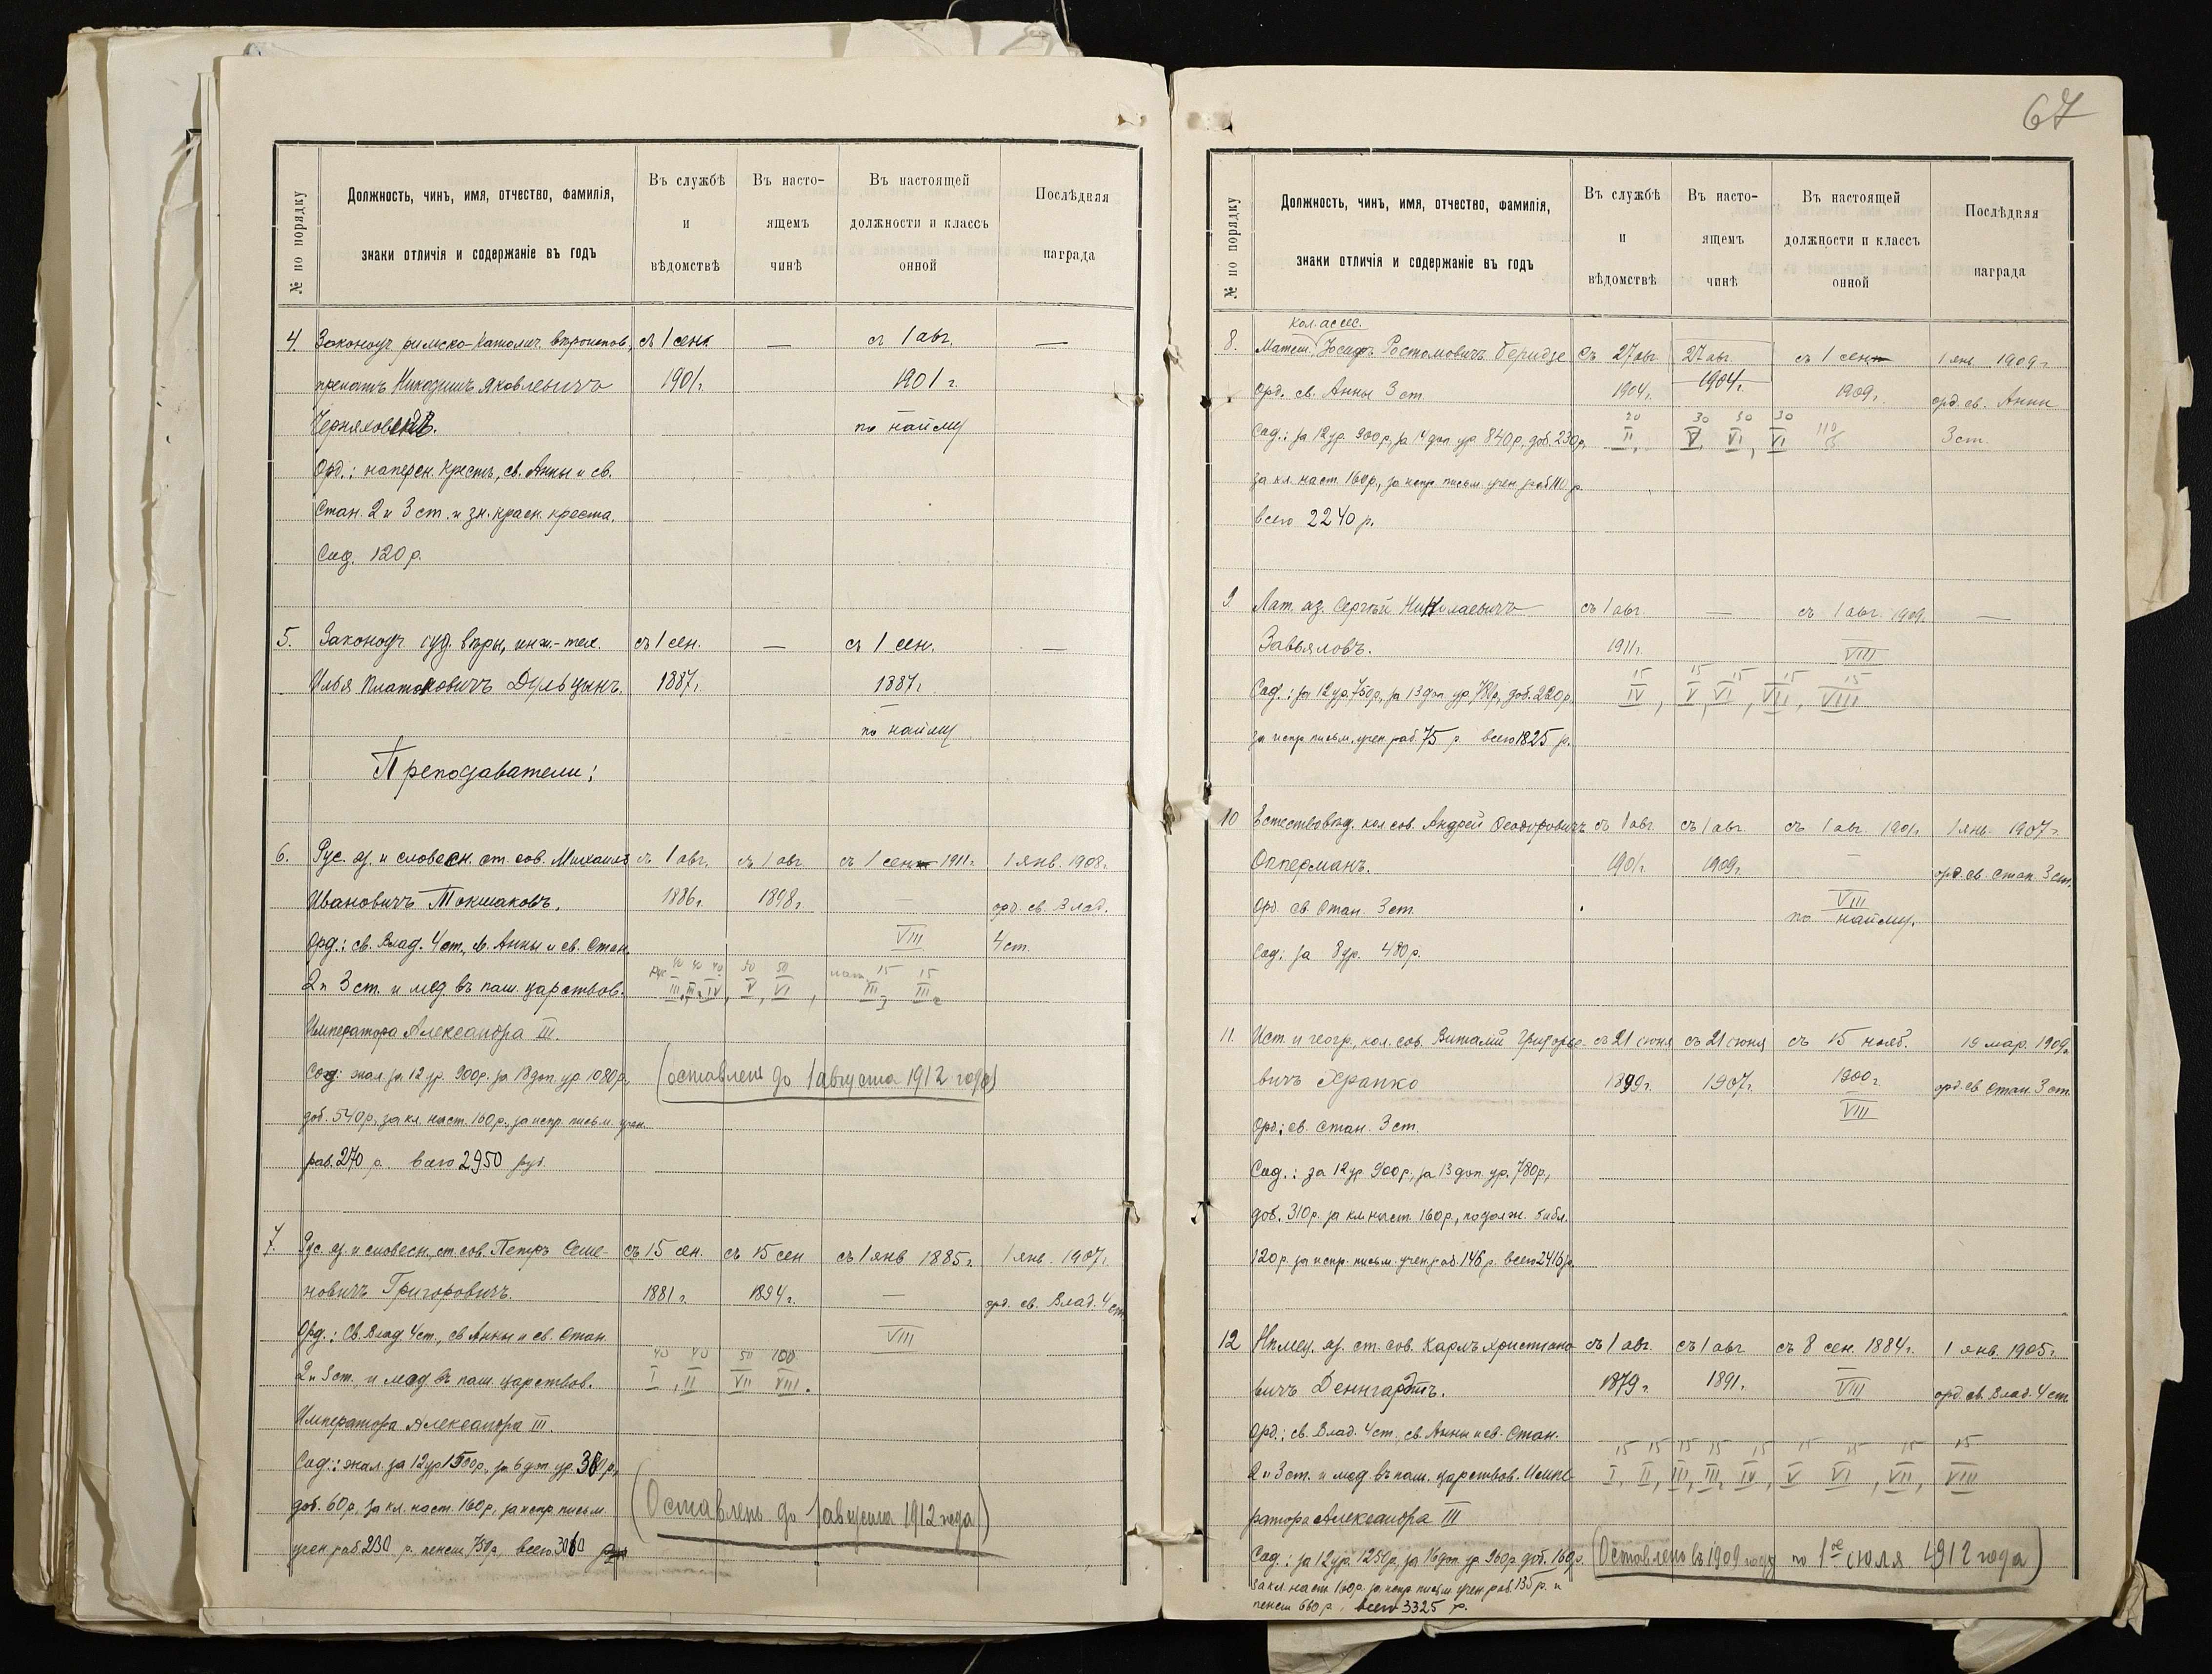 № по порядку
Должность, чинъ, имя, отчество, фамилія,
знаки отличія и содержаніе въ годъ
Въ службѣ
и
вѣдомствѣ
Въ насто-
ящемъ
чинѣ
Въ настоящей
должности и классъ
онной
Послѣдняя
награда
4. Законоуч. римско-католич. вѣроиспов., съ 1 сент. — съ 1 авг. —
прелатъ Никодимъ Яковлевичъ 1901 г. 1901 г.
по найму
Орд.: наперсн. крестъ, св. Анны и св.
Стан. 2 и 3 ст. и зн. красн. креста.
Сод. 120 р.
5. Законоуч. іуд. вѣры, инж.-тех. съ 1 сен. — съ 1 сен. —
Илья Платоновичъ Дульцинъ. 1887 г. 1887 г.
по найму
Преподаватели:
6. Рус. яз. и словесн. ст. сов. Михаилъ съ 1 авг. съ 1 авг. съ 1 сент 1911 г. 1 янв. 1908 г.
Ивановичъ Токмаковъ. 1886 г. 1898 г. орд. св. Влад.
Орд.: св. Влад. 4 ст., св. Анны и св. Стан. VIII 4 ст.
2 и 3 ст. и мед. въ пам. царствов.
Императора Александра III.
Сод: жал. за 12 ур. 900 р. за 18 доп. ур. 1080 р. (оставленъ до 1 августа 1912 года)
доб. 540 р., за кл. наст. 160 р., за испр. письм. учен.
раб. 270 р. всего 2950 руб.
7. Рус. яз. и словесн., ст. сов. Петръ Семе- съ 15 сен. съ 15 сен съ 1 янв 1885 г. 1 янв. 1907 г.
новичъ Григоровичъ. 1881 г. 1894 г. — орд. св. Влад. 4 ст.
Орд.: Св. Влад. 4 ст., св. Анны и св. Стан. VIII
40 40 50 100
2 и 3 ст., и мед. въ пам. царствов. I, II VII VIII.
Императора Александра III.
Сод.: жал. за 12 ур 1500 р., за 6 доп. ур. 360 р.,
доб. 60 р., за кл. наст. 160 р., за испр. письм. (Оставленъ до 1 августа 1912 года)
учен. раб. 230 р. пенсіи 750 р., всего 3060
67
№ по порядку
Должность, чинъ, имя, отчество, фамилія,
знаки отличія и содержаніе въ годъ
Въ службѣ
и
вѣдомствѣ
Въ насто-
ящемъ
чинѣ
Въ настоящей
должности и классъ
онной
Послѣдняя
награда
кол. ассес.
8. Матем. Іосифъ Ростомовичъ Беридзе Съ 27 авг. 27 авг. съ 1 сент 1 янв 1909 г.
Орд. св. Анны 3 ст. 1904 г. 1904 г. 1909 г. орд. св. Анны
20 30 30 30 110
Сод.: за 12 ур. 900 р., за 14 доп. ур. 840 р., доб. 230 р., II, V, VI, VI 3 ст.
за кл. наст. 160 р., за испр. письм. учен. раб 110 р.
всего 2240 р.
9. Лат. яз. Сергѣй Николаевичъ съ 1 авг. — съ 1 авг. 1909. —
Завьяловъ. 1911 г. VIII
15 15 15 15 15
Сод.: за 12 ур. 750 р., за 13 доп. ур. 780 р., доб. 220 р. IV, V, VI, VII, VIII
за испр. письм. учен. раб. 75 р. всего 1825 р.
10 Естествовѣд. кол. сов. Андрей Ѳеодоровичъ съ 1 авг. съ 1 авг. съ 1 авг. 1901 г. 1 янв. 1907 г.
Опперманъ. 1901 г. 1909 г. — орд. св. Стан. 3 ст.
Орд. св. Стан. 3 ст. VIII
по найму.
Сод: за 8 ур. 480 р.
11. Ист. и геогр., кол. сов. Виталій Григорье- съ 21 іюня съ 21 іюня съ 15 нояб. 19 мар. 1909 г.
вичъ Храпко 1899 г. 1907 г. 1900 г. орд. св. Стан. 3 ст.
VIII
Орд.: св. Стан. 3 ст.
Сод.: за 12 ур. 900 р., за 13 доп. ур. 780 р.,
доб. 310 р. за кл. наст. 160 р., по долж. библ.
120 р. за испр. письм. учен. раб. 146 р. всего 2416 р.
12 Нѣмец. яз. ст. сов. Карлъ Христіано- съ 1 авг. съ 1 авг съ 8 сен. 1884 г. 1 янв. 1905 г.
вичъ Деннгардтъ. 1879 г. 1891 г. VIII орд. св. Влад. 4 ст.
Орд.: св. Влад. 4 ст., св. Анны и св. Стан.
15 15 15 15 15 15 15 15 15
2 и 3 ст. и мед. въ пам. царствов. Импе- I, II, III, III, IV, V VI, VII, VIII
ратора Александра III
Сод.: за 12 ур. 1250 р., за 16 доп. ур. 960 р. доб. 160 р. (Оставленъ въ 1909 году по 1ое іюля 1912 года)
за кл. наст. 160 р. за испр. письм. учен. раб. 135 р. и
пенсіи 660 р., всего 3325 р.